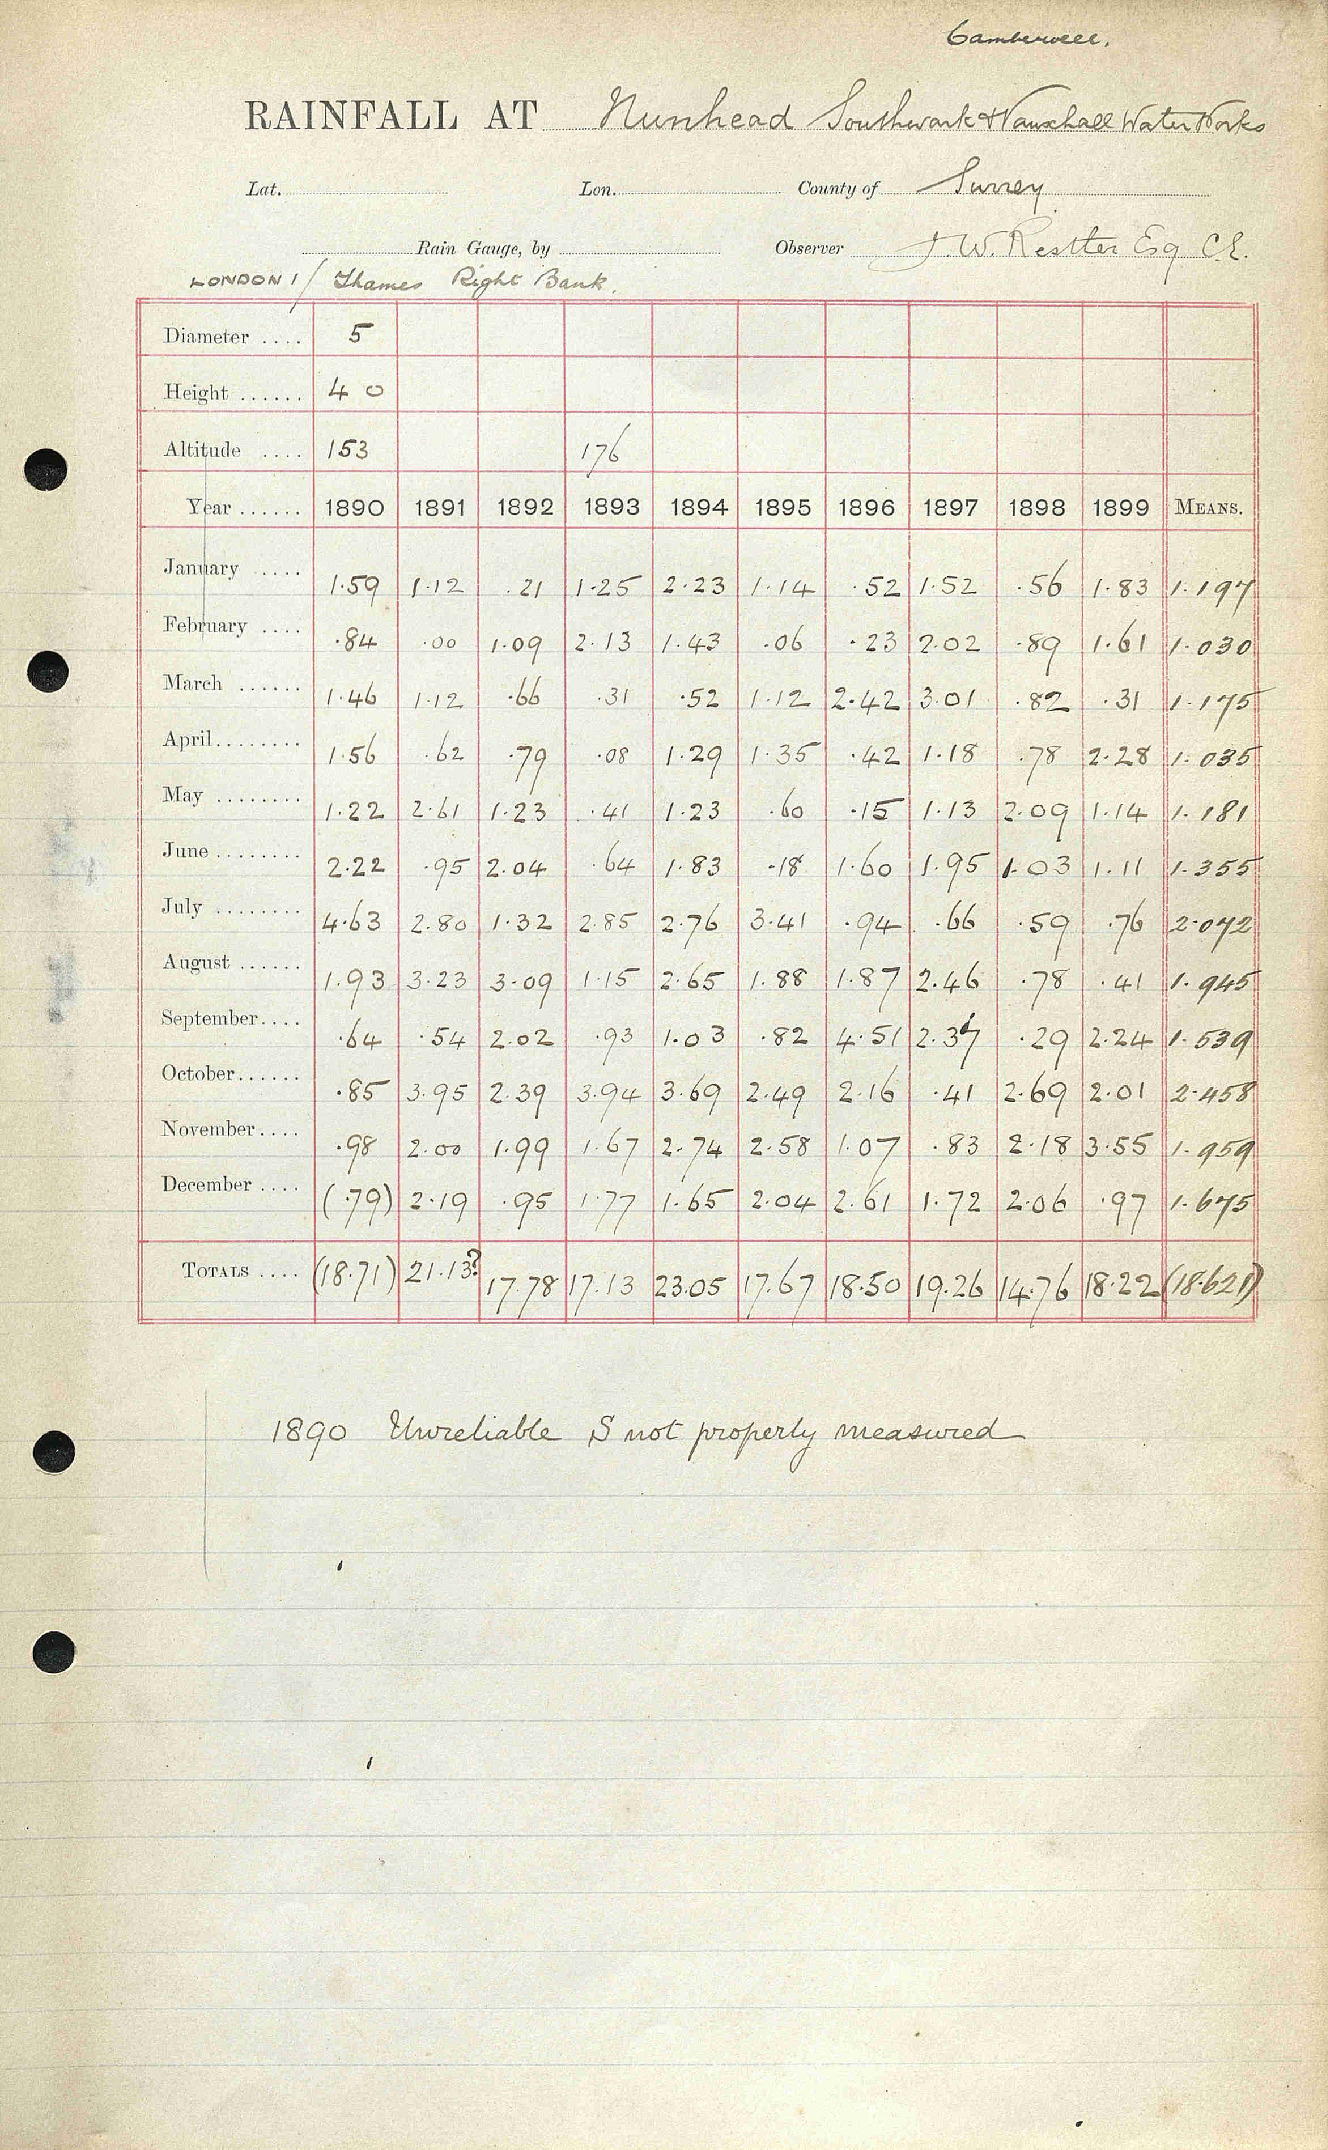 Camberwell.
RAINFALL AT Nunhead Southwark & Vauxhall Water Works
Lat. Lon. County of Surrey
Rain Gauge, by Observer J. W. Restler Esq C.E.
LONDON 1/ Thames Right Bank.
Diameter .... 5
Height ...... 4 0
Altitude .... 153 176
Year ...... 1890 1891 1892 1893 1894 1895 1896 1897 1898 1899 MEANS.
January ..... 1.59 1.12 .21 1.25 2.23 1.14 .52 1.52 .56 1.83 1.197
February .... .84 .00 1.09 2.13 1.43 .06 .23 2.02 .89 1.61 1.030
March ...... 1.46 1.12 .66 .31 .52 1.12 2.42 3.01 .82 .31 1.175
April........ 1.56 .62 .79 .08 1.29 1.35 .42 1.18 .78 2.28 1.035
May ........ 1.22 2.61 1.23 .41 1.23 .60 .15 1.13 2.09 1.14 1.181
June ........ 2.22 .95 2.04 .64 1.83 .18 1.60 1.95 1.03 1.11 1.355
July ........ 4.63 2.80 1.32 2.85 2.76 3.41 .94 .66 .59 .76 2.072
August ...... 1.93 3.23 3.09 1.15 2.65 1.88 1.87 2.46 .78 .41 1.945
September.... .64 .54 2.02 .93 1.03 .82 4.51 2.37 .29 2.24 1.539
October...... .85 3.95 2.39 3.94 3.69 2.49 2.16 .41 2.69 2.01 2.458
November.... .98 2.00 1.99 1.67 2.74 2.58 1.07 .83 2.18 3.55 1.959
December .... (.79) 2.19 .95 1.77 1.65 2.04 2.61 1.72 2.06 .97 1.675
TOTALS .... (18.71) 21.13? 17.78 17.13 23.05 17.67 18.50 19.26 14.76 18.22 (18.621)
1890 Unreliable S not properly measured